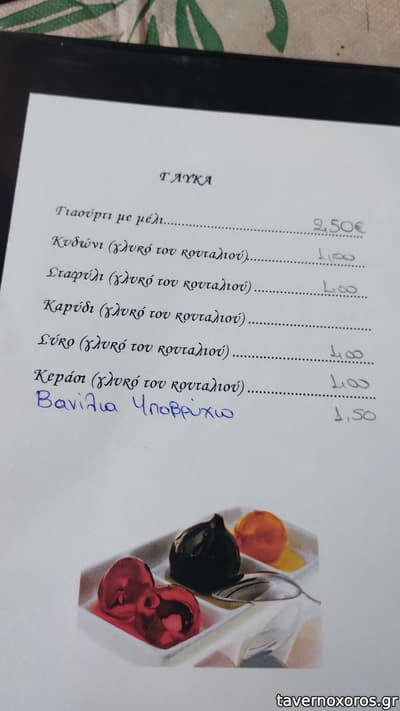 ΓΛΥΚΑ
Γιαούρτι με μέλι............................................... 2,50€
Κυδώνι (γλυκό του κουταλιού)........................... 1,00
Σταφύλι (γλυκό του κουταλιού)........................... 1,00
Καρύδι (γλυκό του κουταλιού)...........................
Σύκο (γλυκό του κουταλιού)........................... 1,00
Κεράσι (γλυκό του κουταλιού)........................... 1,00
Βανίλια Υποβρύχιο 1,50
tavernoxoros.gr